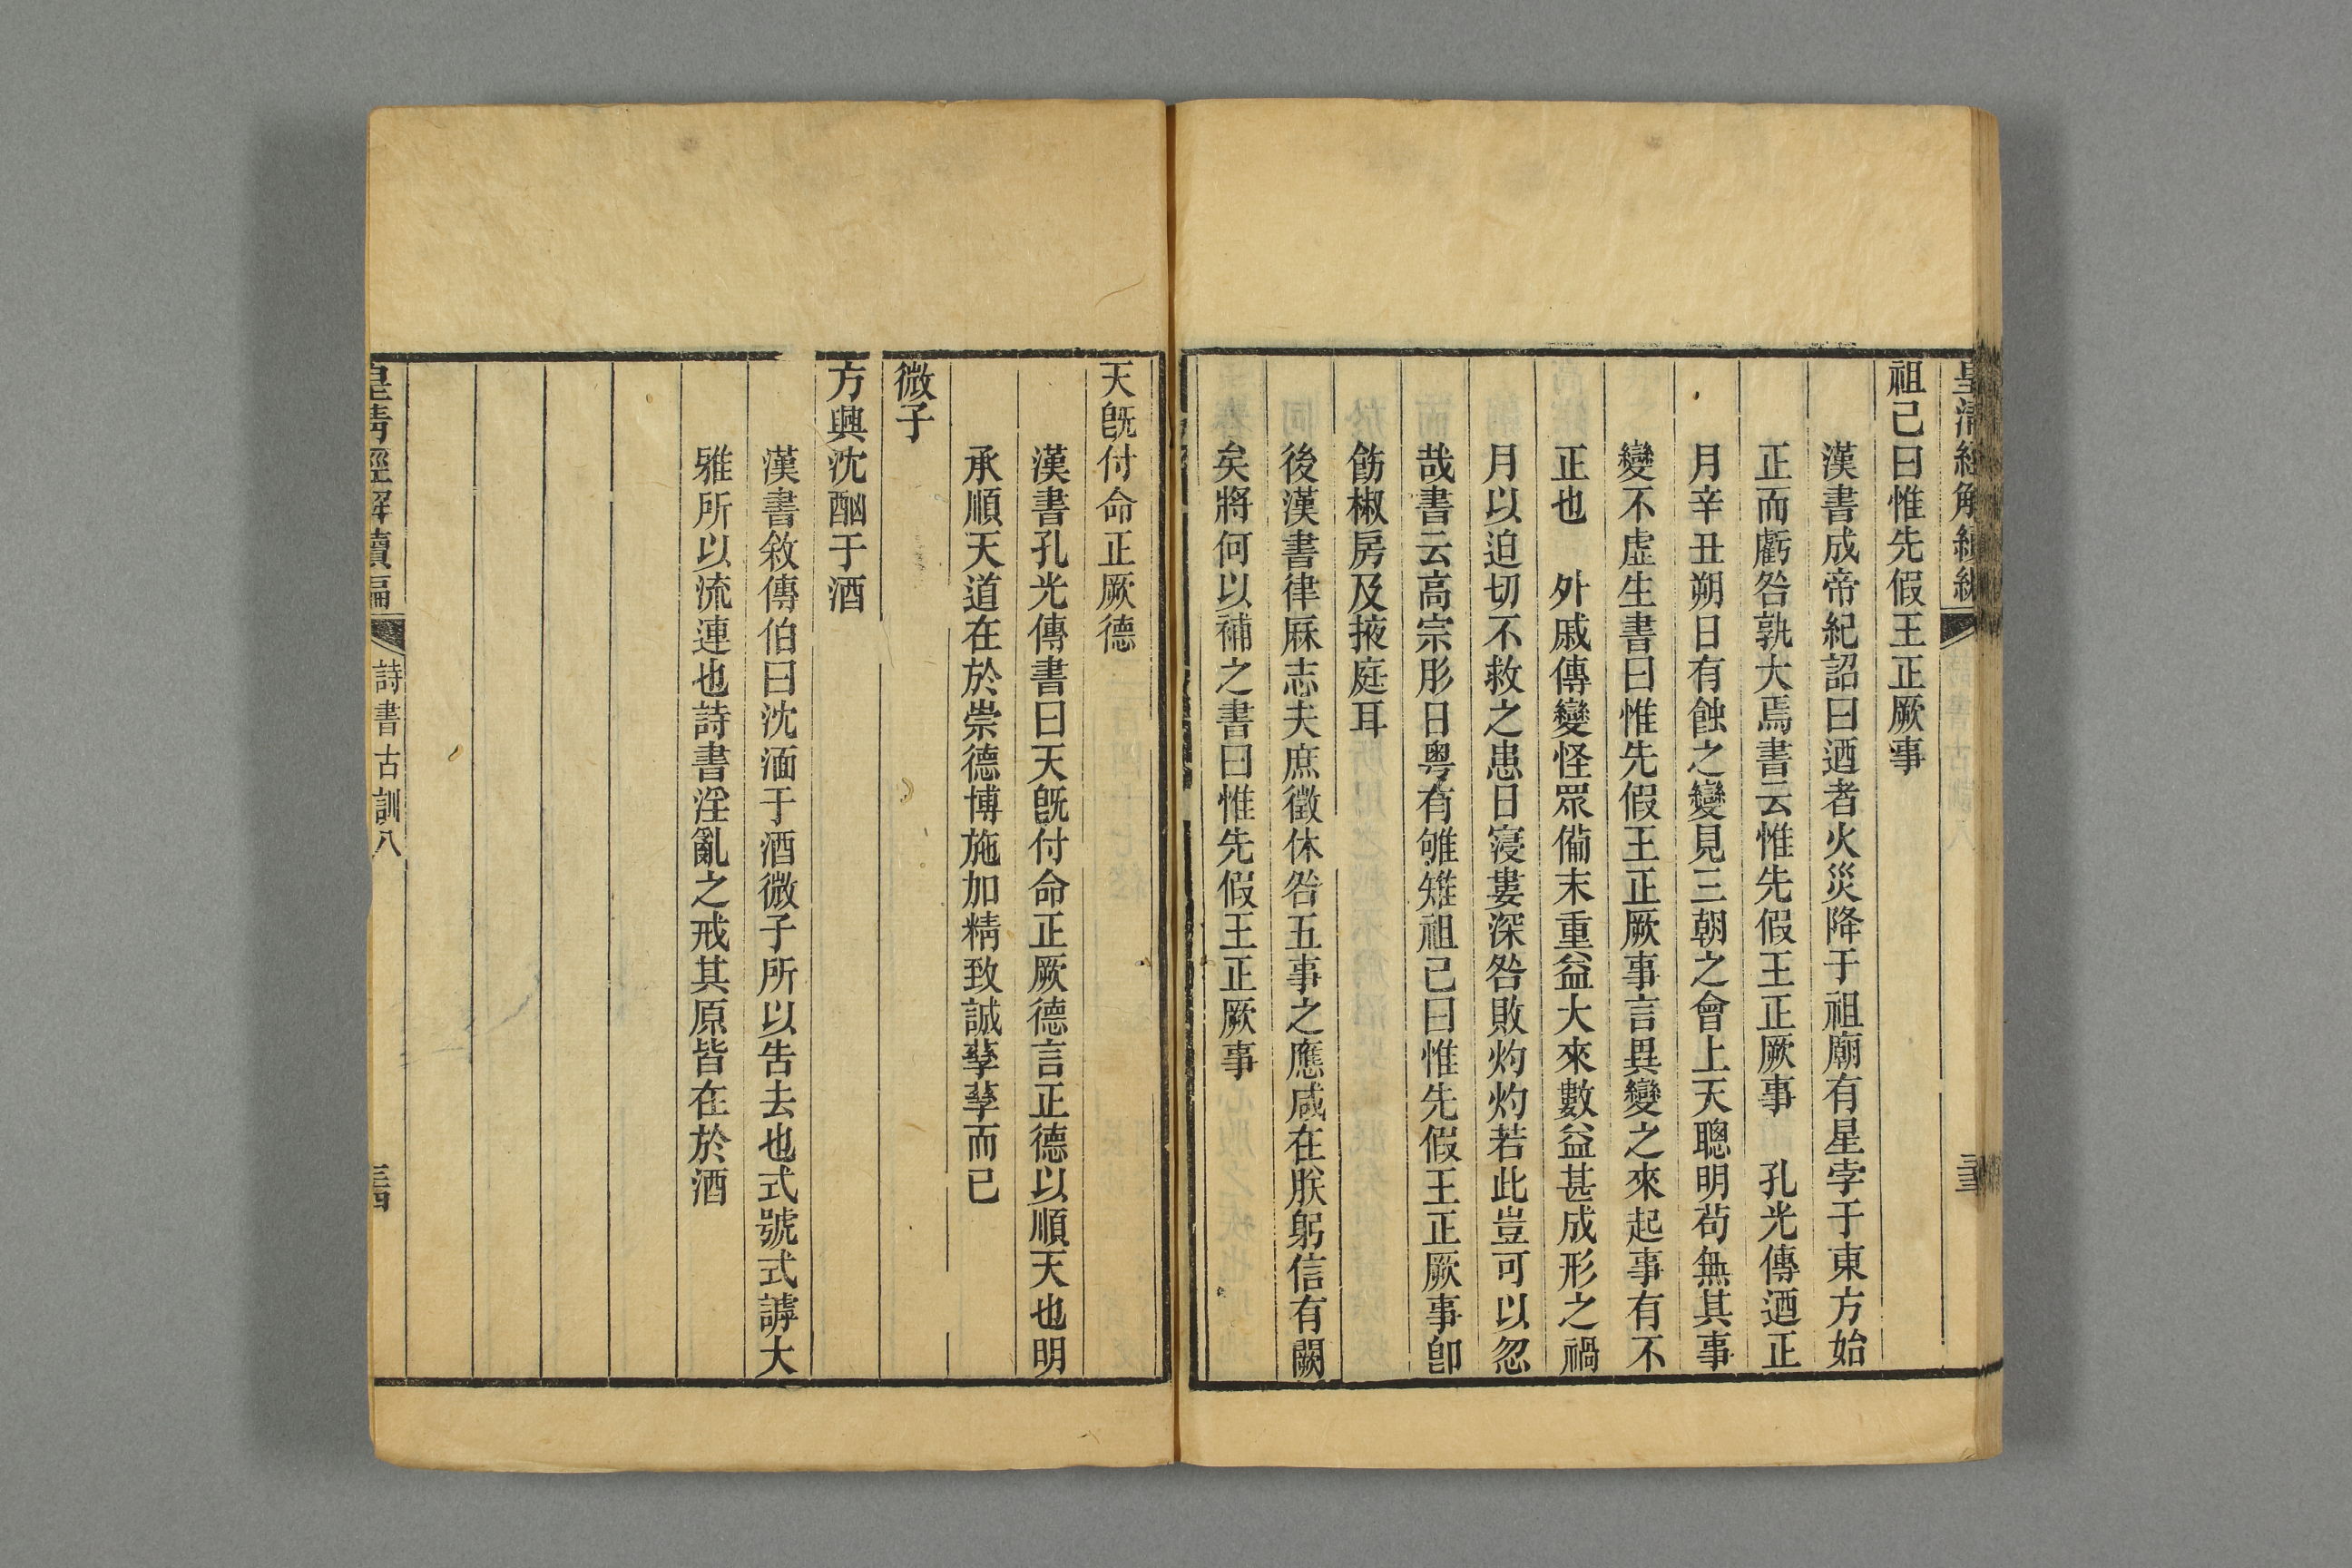 祖己曰惟先假王正厥事
漢書成帝紀詔曰迺者火災降于祖廟有星孛于東方始
正而虧咎孰大焉書云惟先假王正厥事　孔光傳迺正
月辛丑朔日有蝕之變見三朝之會上天聰明苟無其事
變不虛生書曰惟先假王正厥事言異變之來起事有不
正也　外戚傳變怪眾備末重益大來數益甚成形之禍
月以迫切不救之患日寖婁深咎敗灼灼若此豈可以忽
哉書云高宗肜日粵有雊雉祖己曰惟先假王正厥事卽
飭椒房及掖庭耳
後漢書律厤志夫庶徵休咎五事之應咸在朕躬信有闕
矣將何以補之書曰惟先假王正厥事
天旣付命正厥德
漢書孔光傳書曰天旣付命正厥德言正德以順天也明
承順天道在於崇德博施加精致誠孳孳而已
微子
方興沈酗于酒
漢書敘傳伯曰沈湎于酒微子所以告去也式號式謼大
雅所以流連也詩書淫亂之戒其原皆在於酒
皇清經解續編
詩書古訓八